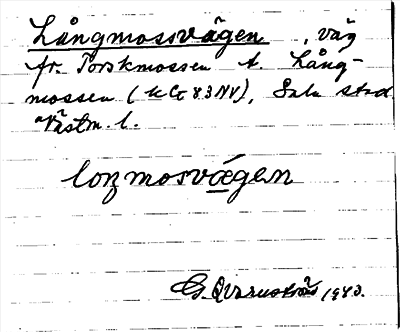 Långmossvägen, väg
fr. Torskmossen t. Lång-
mossen (83NV), Sala stad
Västm. l.
loŋmosvægen
G. Qvarnström 1940.